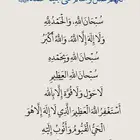 سُبْحَانَ اللَّهِ، وَالْحَمْدُ لِلَّهِ
وَلَا إِلَهَ إِلَّا اللَّهُ، وَاللَّهُ أَكْبَرُ
سُبْحَانَ اللَّهِ وَبِحَمْدِهِ
سُبْحَانَ اللَّهِ الْعَظِيمِ
لَا حَوْلَ وَلَا قُوَّةَ إِلَّا بِاللَّهِ
أَسْتَغْفِرُ اللَّهَ الْعَظِيمَ الَّذِي لَا إِلَهَ إِلَّا هُوَ
الْحَيُّ الْقَيُّومُ وَأَتُوبُ إِلَيْهِ